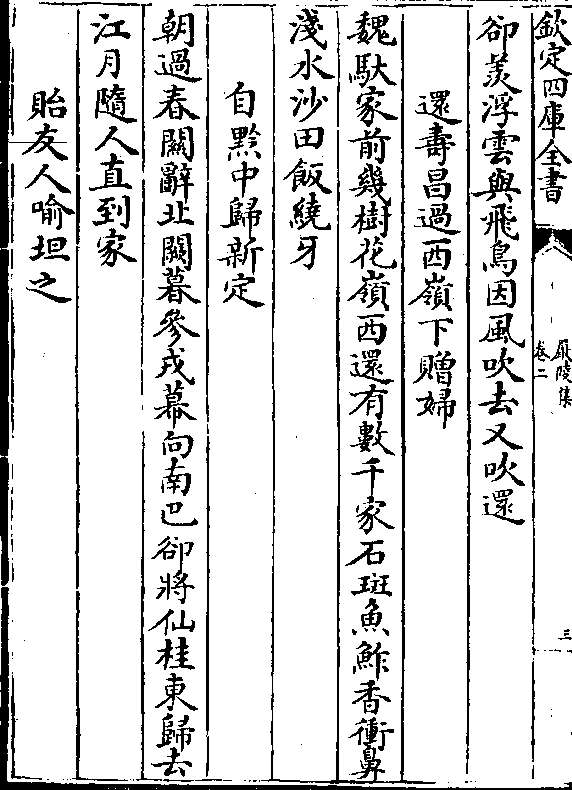 欽定四庫全書
嚴陵集
卷二
三
卻羨浮雲與飛鳥因風吹去又吹還
還壽昌過西嶺下贈婦
魏馱家前幾樹花嶺西還有數千家石斑魚鮓香衝鼻
淺水沙田飯繞牙
自黔中歸新定
朝過春關辭北闕暮參戎幕向南巴卻將仙桂東歸去
江月隨人直到家
貽友人喻坦之